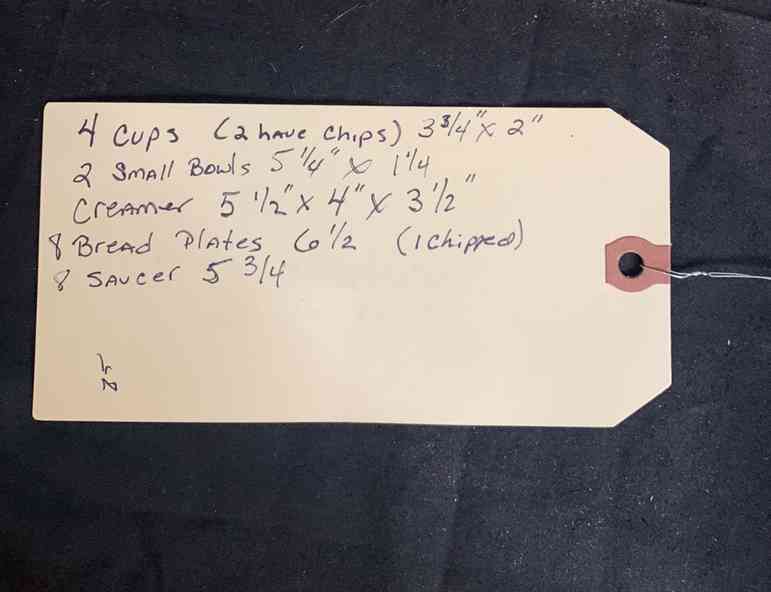 4 Cups (2 have chips) 3 3/4" x 2"
2 Small Bowls 5 1/4" x 1 1/4
Creamer 5 1/2" x 4" x 3 1/2"
8 Bread Plates 6 1/2 (1 chipped)
8 Saucer 5 3/4